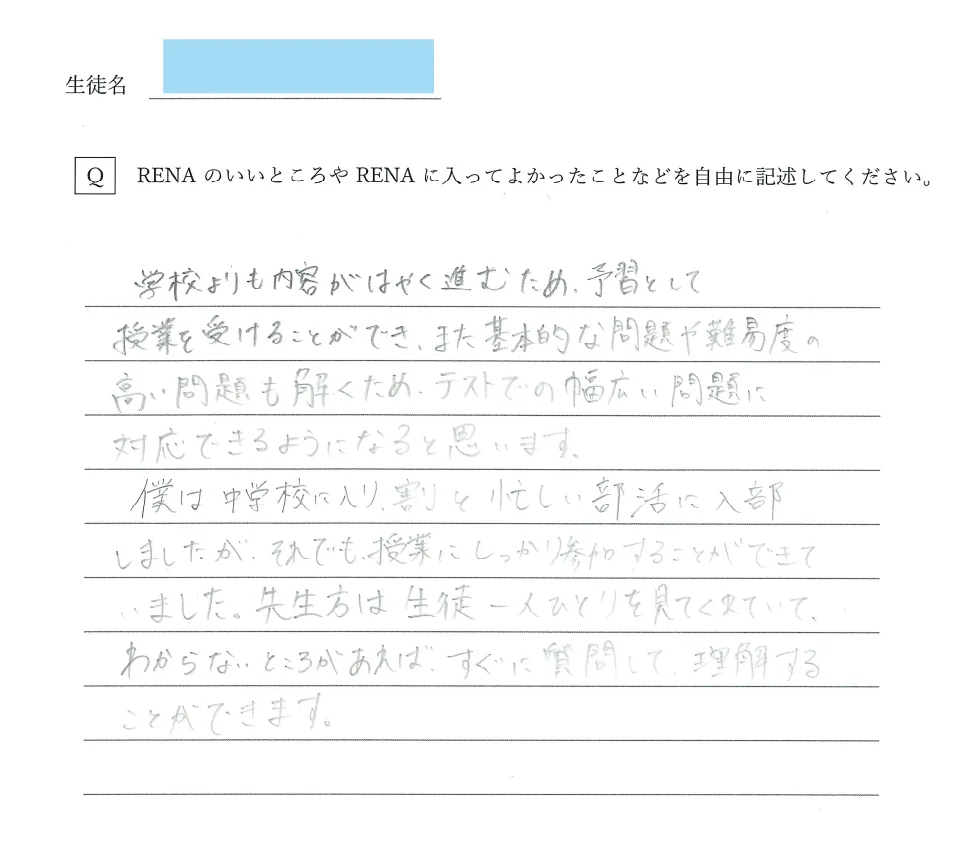 生徒名
Q RENA のいいところや RENA に入ってよかったことなどを自由に記述してください。
学校よりも内容がはやく進むため、予習として
授業を受けることができ、また基本的な問題や難易度の
高い問題も解くため、テストでの幅広い問題に
対応できるようになると思います。
僕は中学校に入り、割と忙しい部活に入部
しましたが、それでも、授業にしっかり参加することができて
いました。先生方は生徒一人ひとりを見てくれていて、
わからないところがあれば、すぐに質問して、理解する
ことができます。